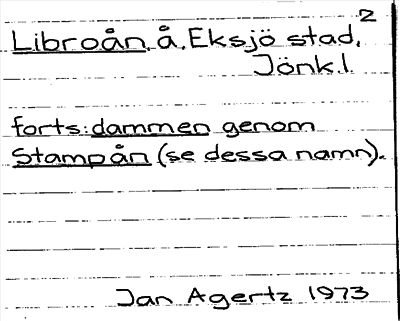 2
Libroån. å. Eksjö stad,
Jönk.l.
forts: dammen genom
Stampån (se dessa namn).
Jan Agertz 1973